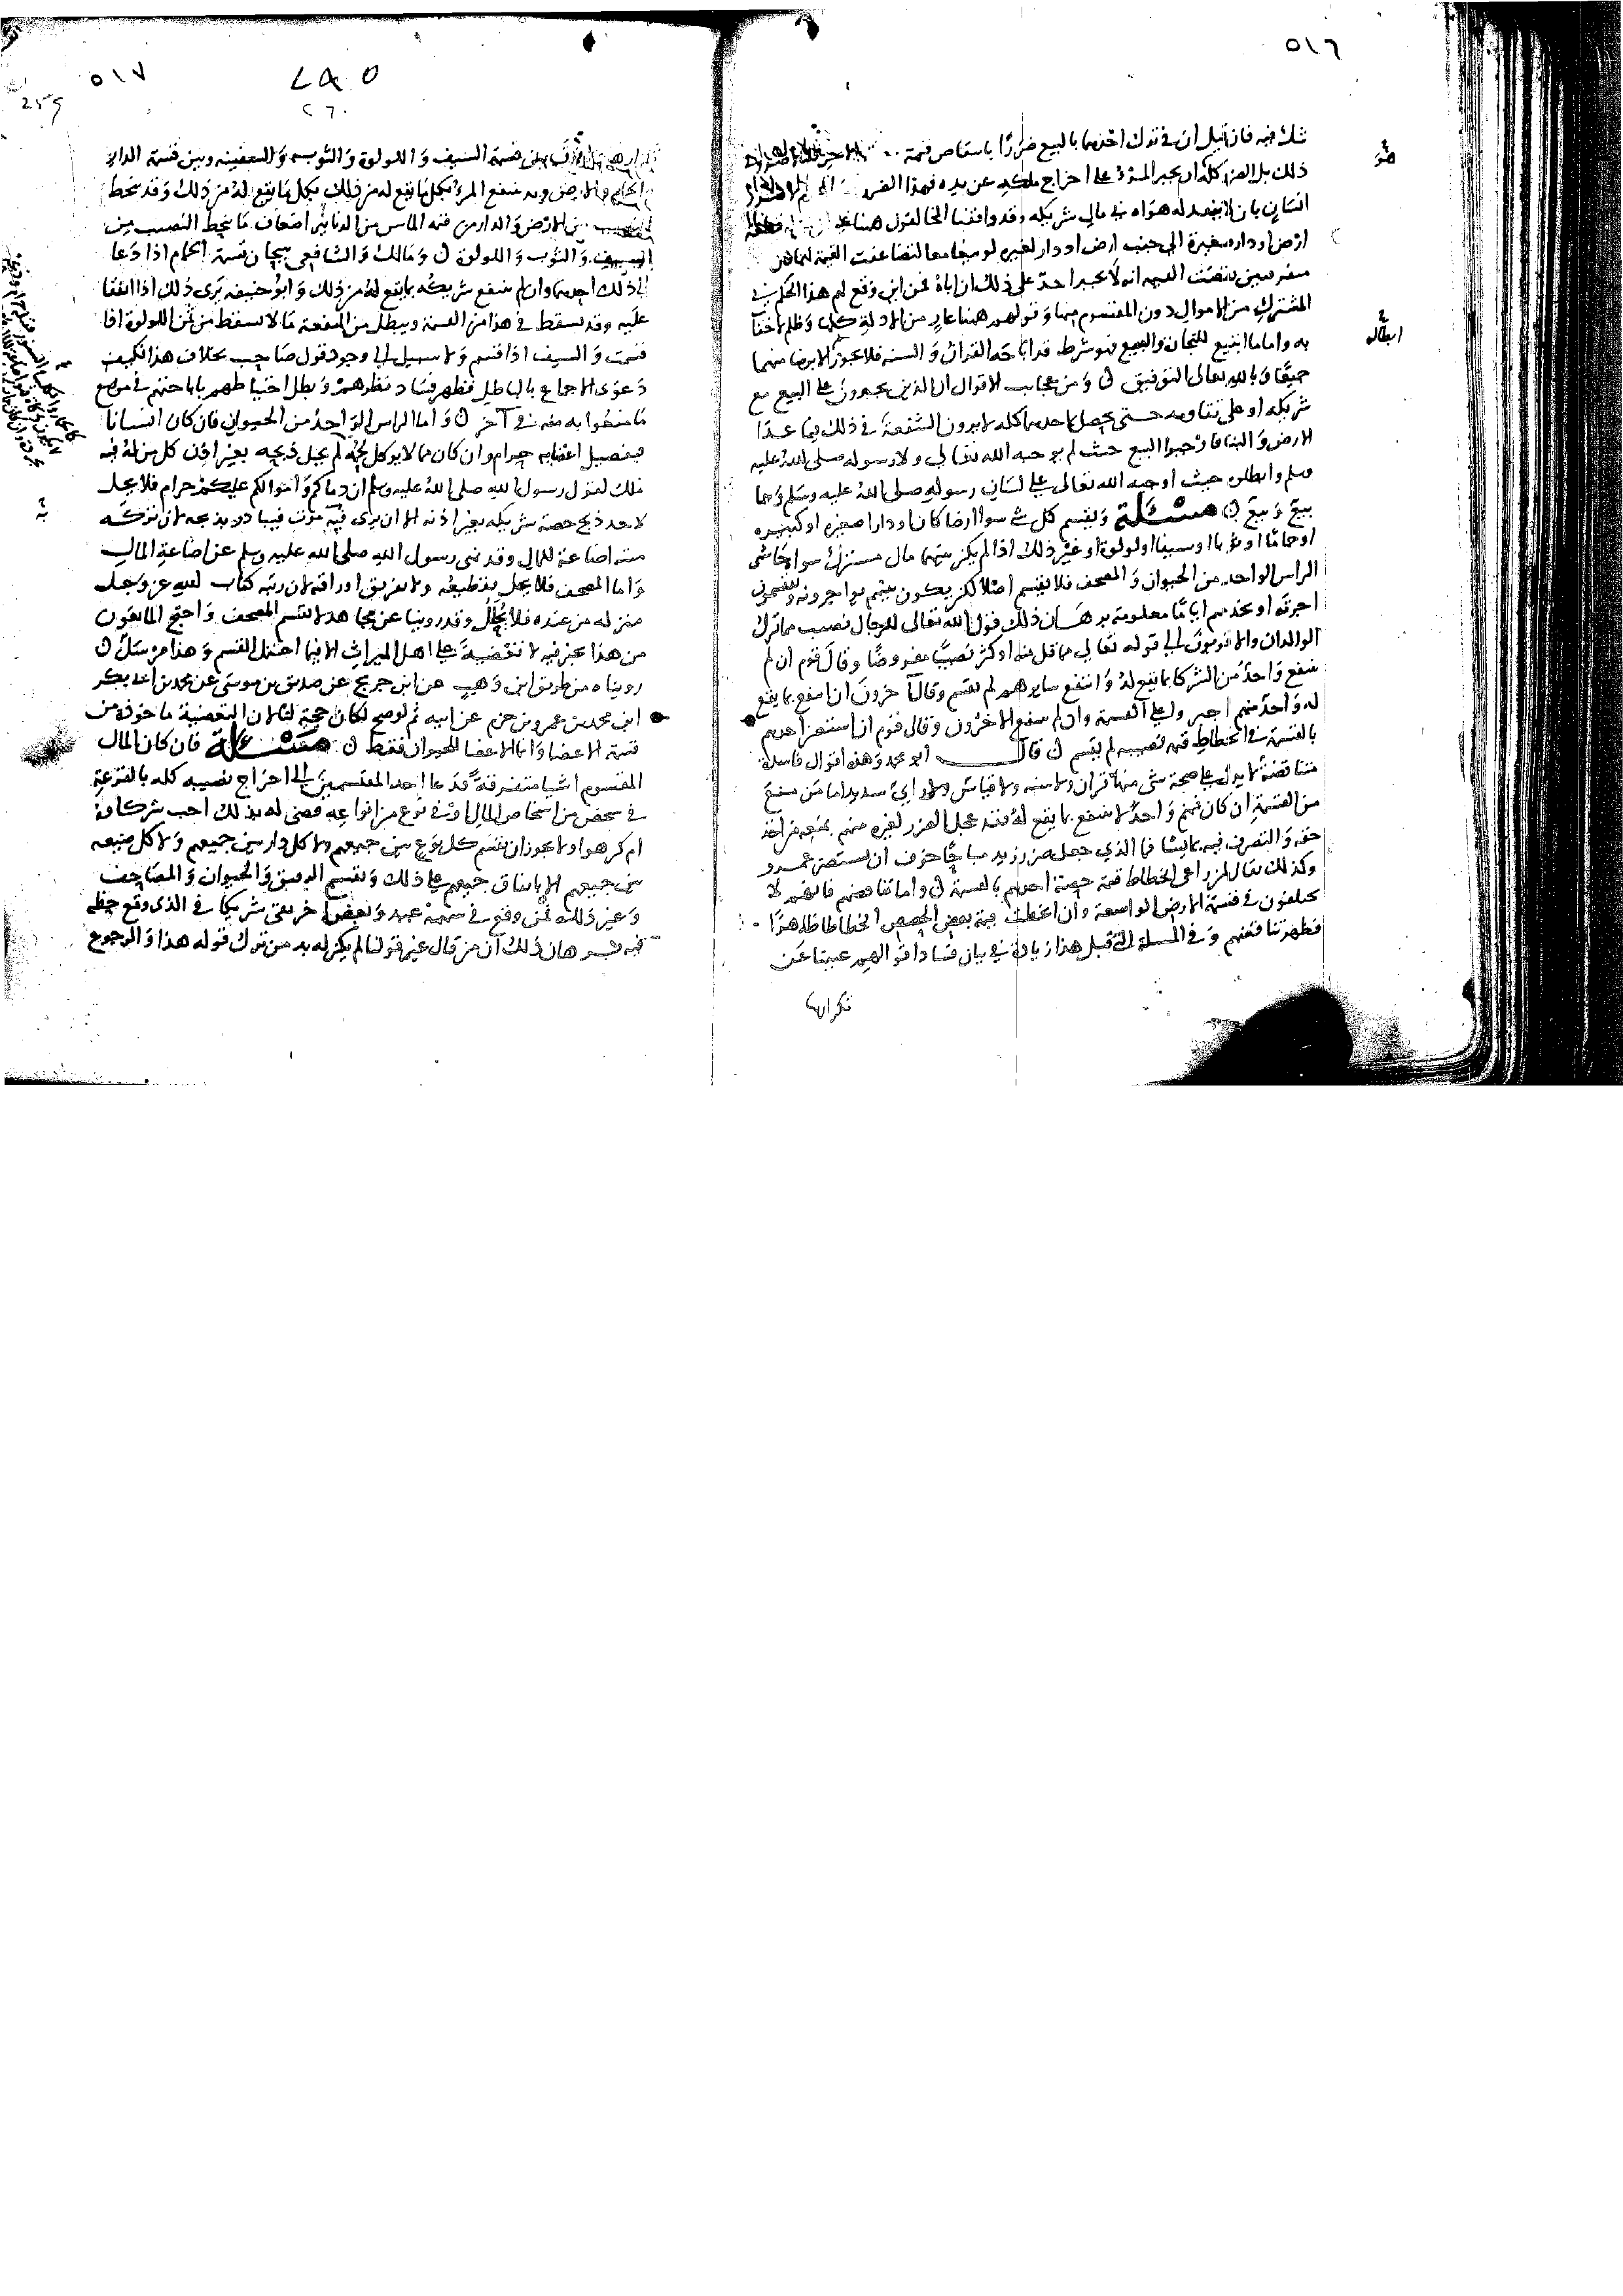 ٥١٦
شك فيه فان قيل ان في ترك اخذهما بالبيع ضررًا بانتقاص قيمة
ذلك بل الضرر كله ان يجبر المرء على اخراج ملكه عن يده فهذا الضرر
انسان بان لا ينفذ له هواه في مال شريكه وقد وافقنا المخالفون هنا على
ارض او دار صغيرة الى جنب ارض او دار لغيره لو بيعا معا لتضاعفت القيمة لهما فان بيعا
مفرقين نقصت القيمة انه لا يجبر احد على ذلك ان اباه فمن اين وقع لهم هذا الحكم في
المشترك من الاموال دون المقسوم منها وقولهم ههنا عارٍ من الادلة كلها وظلم لا خفا
به واما ما ابتيع للتجارة والبيع فهو شرط قد اباحه القرآن والسنة فلا يجوز الا برضا منهما
جميعًا وبالله تعالى التوفيق ن ومن عجايب الاقوال ان الذين يجبرون على البيع مع
شريكه او على تقاومه حتى يحصل لاحدهما كله لا يرون الشفعة في ذلك فيما عدا
الارض والبنا فاوجبوا البيع حيث لم يوجبه الله تعالى ولا رسوله صلى الله عليه
وسلم وابطلوه حيث اوجبه الله تعالى على لسان رسوله صلى الله عليه وسلم وهما
بيع وبيع ن مسئلة ويقسم كل شي سوا ارضا كان او دارا صغيرة او كبيرة
او حماما او ثوبا او سيفا او لولوة او غير ذلك اذا لم يكن بينهما مال مشترك سواه حاشى
الراس الواحد من الحيوان والمصحف فلا يقسم اصلا لكن يكون بينهم يواجرونه ويقتسمون
اجرته او يخدمهم اياما معلومة برهان ذلك قول الله تعالى للرجال نصيب مما ترك
الوالدان والاقربون الى قوله تعالى مما قل منه او كثر نصيبًا مفروضًا وقال قوم ان لم
ينتفع واحد من الشركا بما يقع له وانتفع سايرهم لم يقسم وقال آخرون ان انتفع بما يقع
له واحد منهم اجبر ولي على القسمة وان لم ينتفع الاخرون وقال قوم ان استضر احدهم
بالقسمة في انحطاط قيمة نصيبه لم يقسم ن قال ابو محمد وهذه اقوال فاسدة
متناقضة لا يدل على صحة شي منها قرآن ولا سنة ولا قياس ولا راي سديد اما من منع
من القسمة ان كان فيهم واحد لا ينتفع بما يقع له فقد عجل الضرر لغيره منهم بمنعه من اخذ
حقه والتصرف فيه بما يشا فما الذي جعل ضرر زيد مباحًا خوف ان يستضر عمرو
وكذلك يقال لمن راعى انحطاط قيمة حصة احدهم بالقسمة ن واما تناقضهم فانهم لا
يختلفون في قسمة الارض الواسعة وان انحطت قيمة بعض الحصص انحطاطا ظاهرًا
فظهر تناقضهم وفي المسلة التي قبل هذا زيادة في بيان فساد اقوالهم غنينا عن
تكرارها
ابطاله
٥١٧
٢٦٠
259
بين قسمة السيف واللولوة والثوب والسفينة وبين قسمة الدار
والحمام والارض وقد ينتفع المرء بكل ما يقع له من ذلك بكل ما يقع له من ذلك وقد يحط
النصيب من الارض والدار من قيمة الماس من الدنانير اضعاف ما يحط النصيب من
السيف والثوب واللولوة ن ومالك والشافعي يريان قسمة الحمام اذا دعا
الى ذلك احدهما وان لم ينتفع شريكه بما يقع له من ذلك وابو حنيفة يرى ذلك اذا اتفقا
عليه وقد يسقط في هذا من القسمة ويبطل من المنفعة ما لا يسقط من ثمن اللولوة اذا
قسمت والسيف اذا قسم ولا سبيل الى وجود قول صاحب بخلاف هذا فكيف
دعوى الاجماع بالباطل فظهر فساد نظرهم وبطل احتياطهم باباحتهم في موضع
ما منعوا به منه في آخر ن واما الراس الواحد من الحيوان فان كان انسانا
فتفصيل اعضايه حرام وان كان مما لا يوكل لحمه لم يحل ذبحه بغير اذن كل من له فيه
ملك لقول رسول الله صلى الله عليه وسلم ان دماكم واموالكم عليكم حرام فلا يحل
لاحد ذبح حصة شريكه بغير اذنه الا ان يرى فيه موت فيبادر بذبحه لان تركه
ميتة اضاعة للمال وقد نهى رسول الله صلى الله عليه وسلم عن اضاعة المال
واما المصحف فلا يحل تقطيعه ولا تفريق اوراقه لان رتبه كتاب الله عز وجل
منزلة من عنده فلا تحال وقد روينا عن مجاهد لا تقسم المصحف واحتج المانعون
من هذا بخبر فيه لا تعضية على اهل الميراث الا فيما احتمل القسم وهذا مرسل ن
رويناه من طريق ابن وهب عن ابن جريج عن صديق بن موسى عن محمد بن ابي بكر
ابن محمد بن عمرو بن حزم عن ابيه ثم لو صح لكان حجة لنا لان التعضية ماخوذة من
قسمة الاعضا وانما الاعضا للحيوان فقط ن مسئلة فان كان المال
المقسوم اشيا متفرقة فدعا احد المقتسمين الى اخراج نصيبه كله بالقرعة
في شخص من اشخاص المال او في نوع من انواعه قضي له بذلك احب شركاوه
ام كرهوا ولا يجوز ان يقسم كل نوع بين جميعهم ولا كل دار بين جميعهم ولا كل ضيعة
بين جميعهم الا باتفاق جميعهم على ذلك ويقسم الرقيق والحيوان والمصاحف
وغير ذلك فمن وقع في سهمه عبد وبعض آخر بقي شريكا في الذي وقع حظه
فيه برهان ذلك ان من قال غير قولنا لم يكن له بد من ترك قوله هذا والرجوع